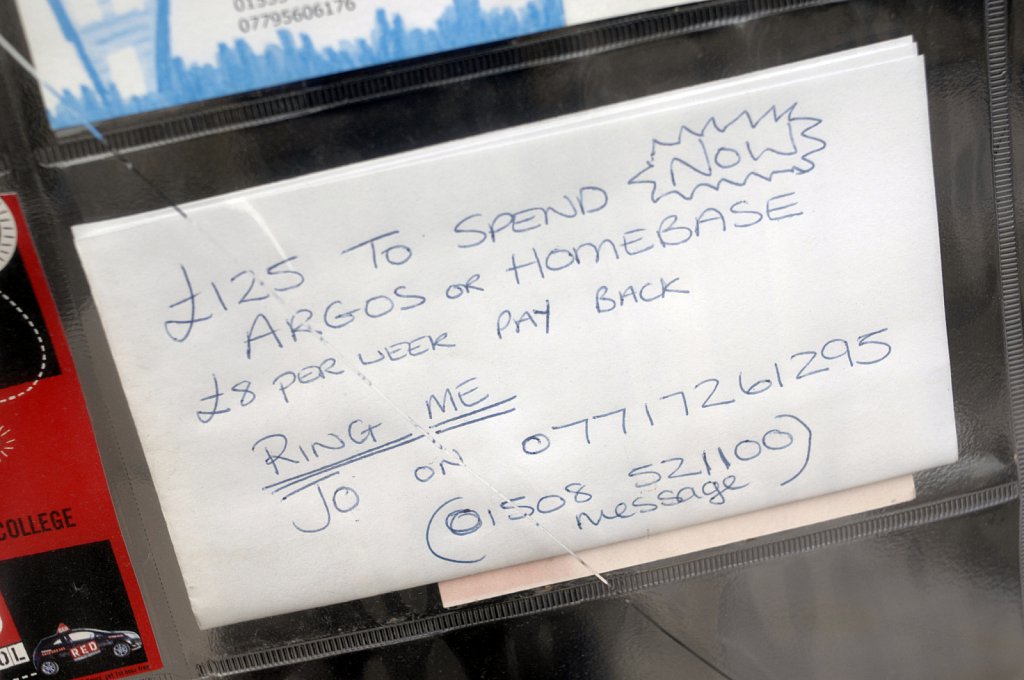 07795606176
£125 TO SPEND NOW
ARGOS OR HOMEBASE
£8 PER WEEK PAY BACK
RING ME
JO ON 07717261295
(01508 521100)
message
COLLEGE
RED